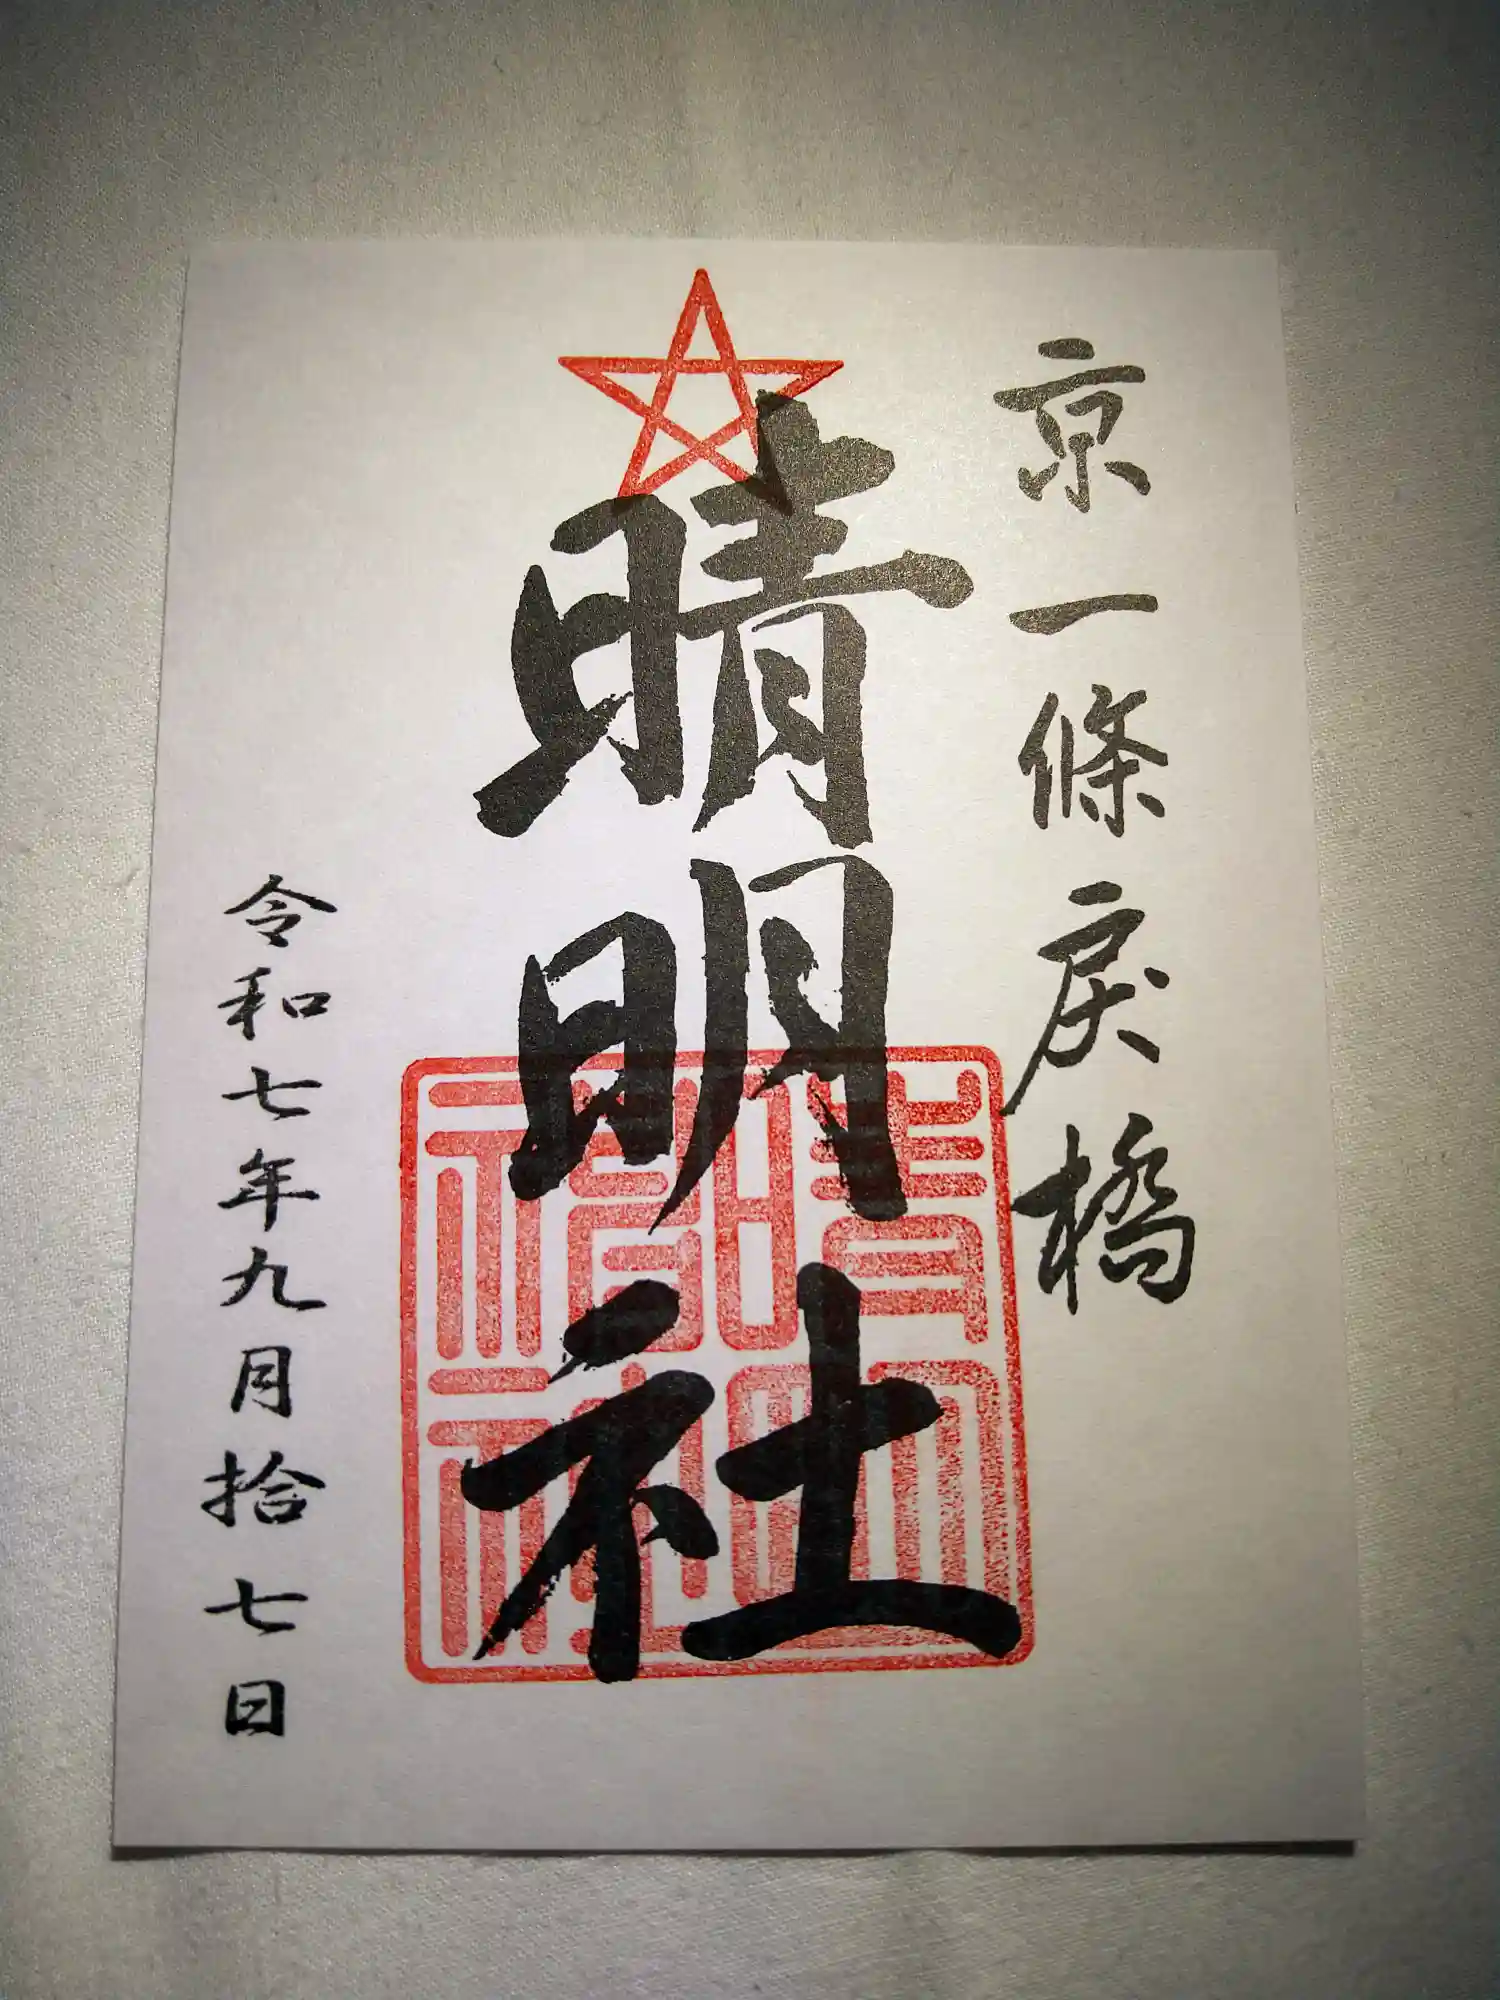 京一條戻橋
晴明社
晴明
神社
令和七年九月拾七日